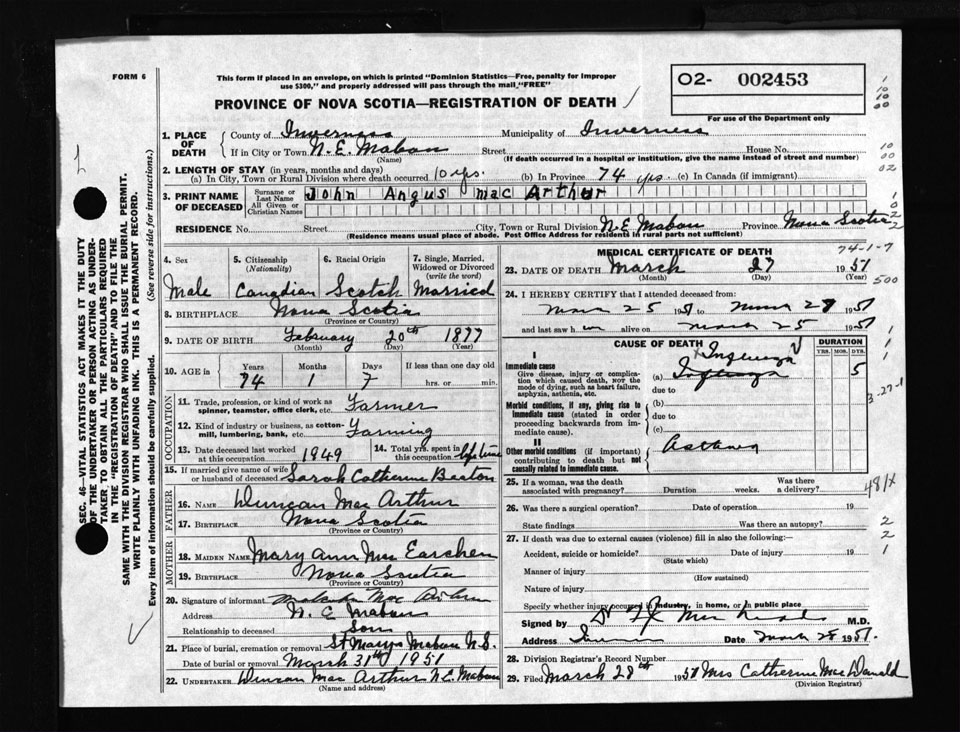 FORM 6
This form if placed in an envelope, on which is printed "Dominion Statistics—Free, penalty for improper
use $300," and properly addressed will pass through the mail, "FREE"
PROVINCE OF NOVA SCOTIA—REGISTRATION OF DEATH
O2- 002453
For use of the Department only
1. PLACE OF DEATH
County of Inverness Municipality of Inverness
If in City or Town N.E. Mabou Street House No.
(Name) (If death occurred in a hospital or institution, give the name instead of street and number)
2. LENGTH OF STAY (in years, months and days)
(a) In City, Town or Rural Division where death occurred 10 yrs. (b) In Province 74 yrs (c) In Canada (if immigrant)
3. PRINT NAME OF DECEASED
Surname or Last Name John Angus Mac Arthur
All Given or Christian Names
RESIDENCE No. Street City, Town or Rural Division N.E. Mabou Province Nova Scotia
(Residence means usual place of abode. Post Office Address for residents in rural parts not sufficient)
4. Sex Male
5. Citizenship (Nationality) Canadian
6. Racial Origin Scotch
7. Single, Married, Widowed or Divorced (write the word) Married
8. BIRTHPLACE Nova Scotia
(Province or Country)
9. DATE OF BIRTH February 20th 1877
(Month) (Day) (Year)
10. AGE in Years Months Days If less than one day old
74 1 7 hrs. or min.
OCCUPATION
11. Trade, profession, or kind of work as spinner, teamster, office clerk, etc. Farmer
12. Kind of industry or business, as cotton-mill, lumbering, bank, etc. Farming
13. Date deceased last worked at this occupation 1949
14. Total yrs. spent in this occupation life time
15. If married give name of wife or husband of deceased Sarah Catherine Beaton
FATHER
16. NAME Duncan Mac Arthur
17. BIRTHPLACE Nova Scotia
(Province or Country)
MOTHER
18. MAIDEN NAME Mary Ann Mac Eachen
19. BIRTHPLACE Nova Scotia
(Province or Country)
20. Signature of informant
Address N. E Mabou
Relationship to deceased Son
21. Place of burial, cremation or removal St Marys Mabou N.S.
Date of burial or removal March 31st 1951
22. UNDERTAKER Duncan Mac Arthur N.E. Mabou
(Name and address)
MEDICAL CERTIFICATE OF DEATH
74-1-7
23. DATE OF DEATH March 27 1951
(Month) (Day) (Year)
500
24. I HEREBY CERTIFY that I attended deceased from:
Mar 25 1951 to 1951
and last saw h im alive on March 25 1951
CAUSE OF DEATH
DURATION
YRS. MOS. DYS.
I
Immediate cause
Give disease, injury or complication which caused death, NOT the mode of dying, such as heart failure, asphyxia, asthenia, etc.
Influenza
(a) Influenza 5
due to
Morbid conditions, if any, giving rise to immediate cause (stated in order proceeding backwards from immediate cause).
(b)
due to
(c)
II
Other morbid conditions (if important) contributing to death but not causally related to immediate cause.
Asthma
3-27-1
25. If a woman, was the death associated with pregnancy? Duration weeks. Was there a delivery?
481X
26. Was there a surgical operation? Date of operation 19
State findings Was there an autopsy?
27. If death was due to external causes (violence) fill in also the following:—
Accident, suicide or homicide? Date of injury 19
(State which)
Manner of injury
(How sustained)
Nature of injury
Specify whether injury occurred in industry, in home, or in public place
Signed by M.D.
Address Date March 28 1951.
28. Division Registrar's Record Number
29. Filed March 28th 1951 Mrs Catherine Mac Donald
(Division Registrar)
SEC. 46—VITAL STATISTICS ACT MAKES IT THE DUTY
OF THE UNDERTAKER OR PERSON ACTING AS UNDER-
TAKER TO OBTAIN ALL THE PARTICULARS REQUIRED
IN THE "REGISTRATION OF DEATH" AND TO FILE THE
SAME WITH THE DIVISION REGISTRAR WHO SHALL ISSUE THE BURIAL PERMIT.
WRITE PLAINLY WITH UNFADING INK. THIS IS A PERMANENT RECORD.
Every item of information should be carefully supplied. (See reverse side for instructions.)